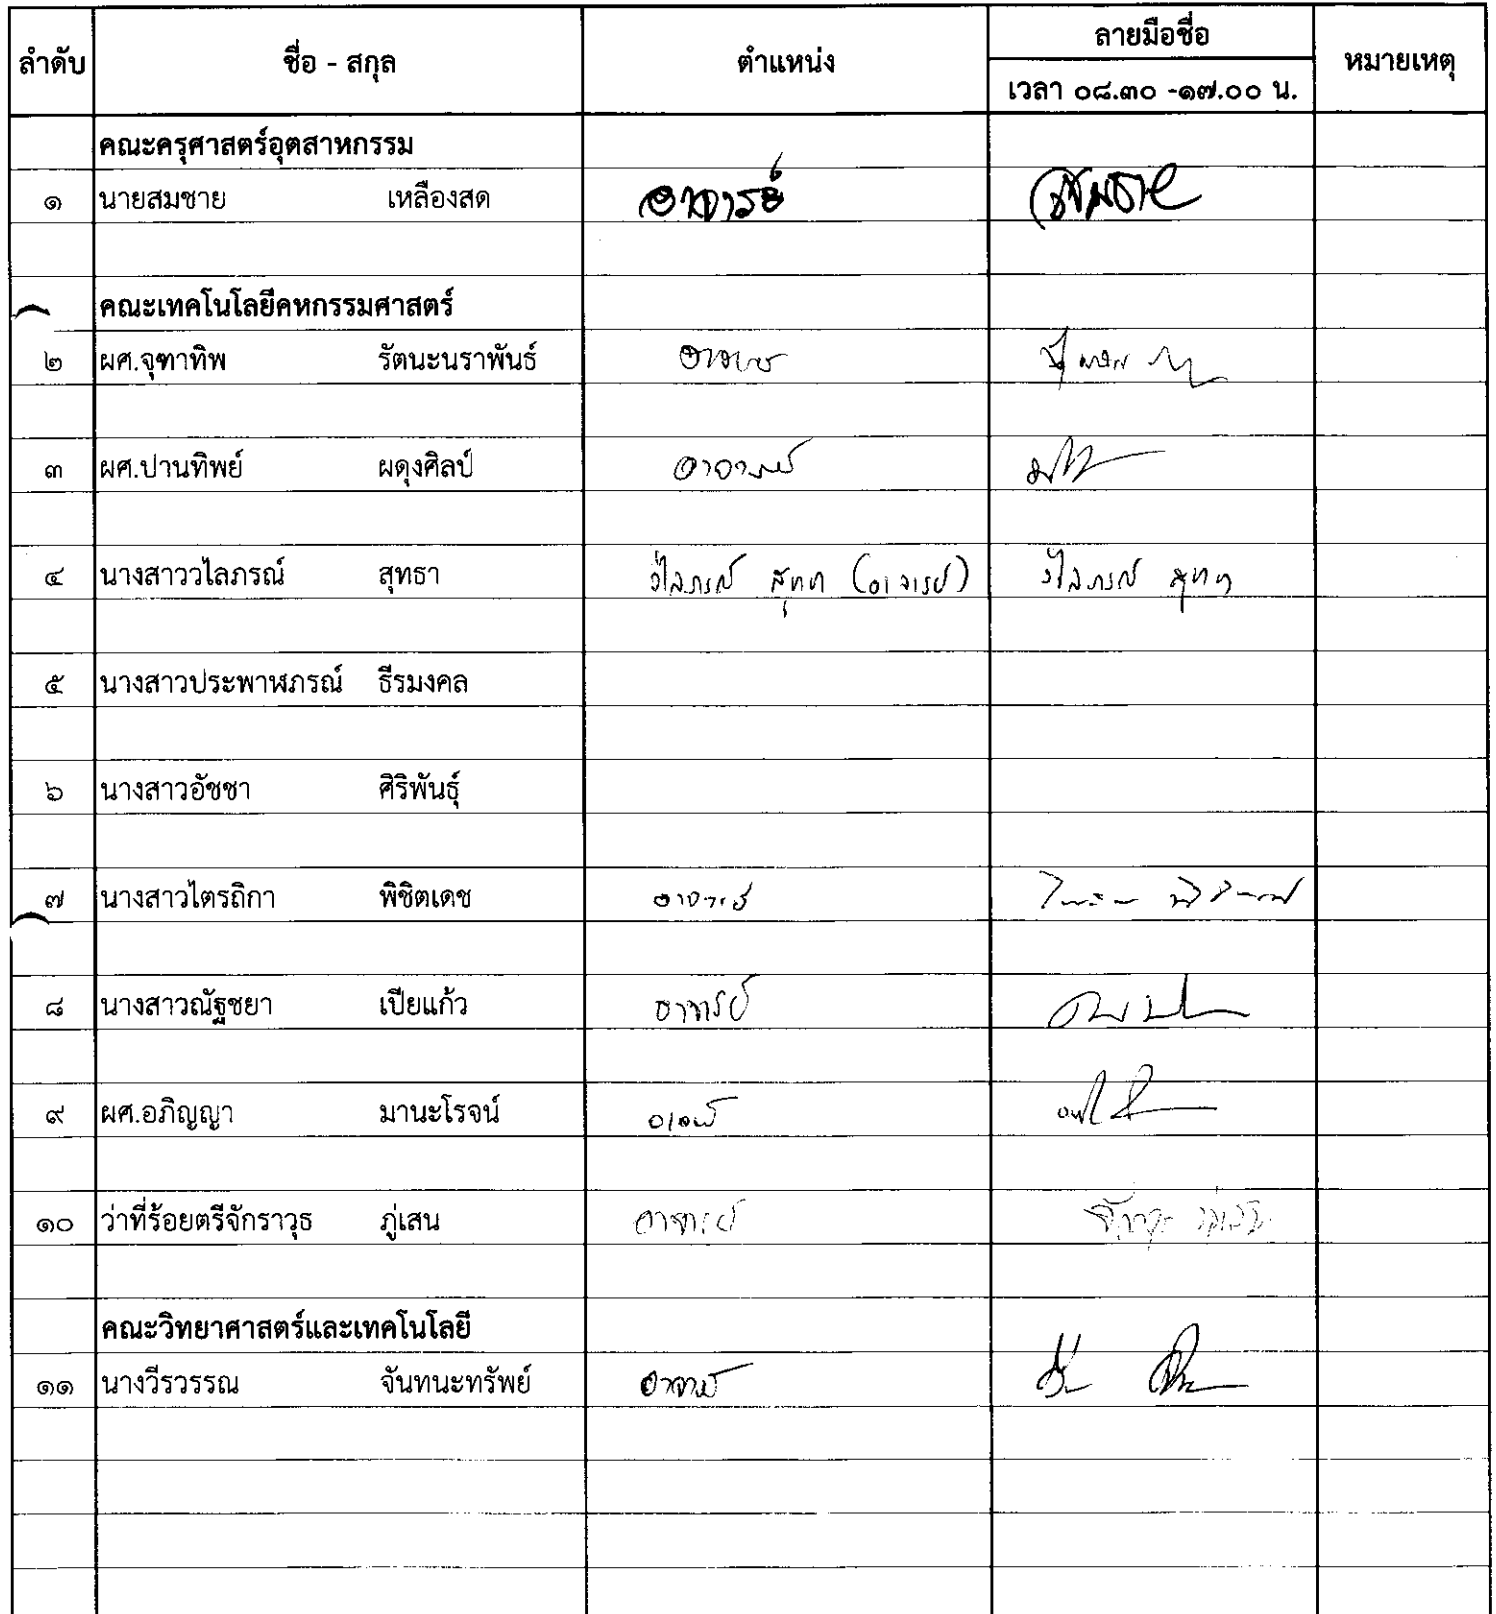 ลำดับ ชื่อ - สกุล ตำแหน่ง ลายมือชื่อ หมายเหตุ
เวลา ๐๘.๓๐ -๑๗.๐๐ น.
คณะครุศาสตร์อุตสาหกรรม
๑ นายสมชาย เหลืองสด อาจารย์
คณะเทคโนโลยีคหกรรมศาสตร์
๒ ผศ.จุฑาทิพ รัตนะนราพันธ์ อาจารย์
๓ ผศ.ปานทิพย์ ผดุงศิลป์ อาจารย์
๔ นางสาววไลภรณ์ สุทธา วไลภรณ์ สุทธา (อาจารย์) วไลภรณ์ สุทธา
๕ นางสาวประพาฬภรณ์ ธีรมงคล
๖ นางสาวอัชชา ศิริพันธุ์
๗ นางสาวไตรถิกา พิชิตเดช อาจารย์
๘ นางสาวณัฐชยา เปียแก้ว อาจารย์
๙ ผศ.อภิญญา มานะโรจน์ อาจารย์
๑๐ ว่าที่ร้อยตรีจักราวุธ ภู่เสน อาจารย์
คณะวิทยาศาสตร์และเทคโนโลยี
๑๑ นางวีรวรรณ จันทนะทรัพย์ อาจารย์